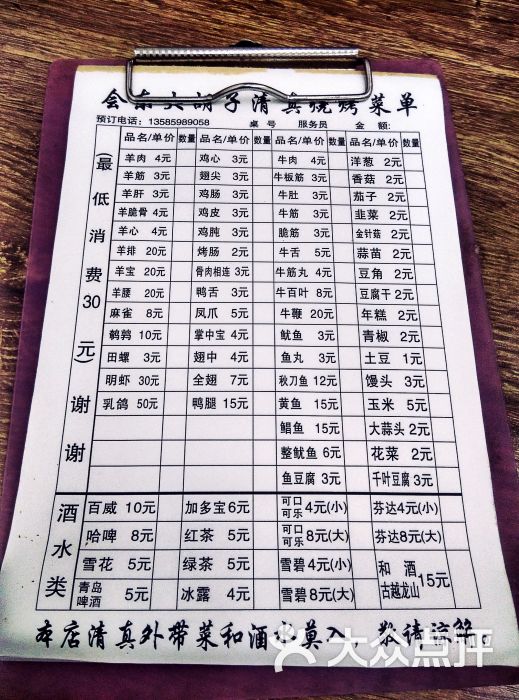 会东大胡子清真烧烤菜单
预订电话：13585989058 桌号 服务员 金额：
（最低消费30元）谢谢
品名/单价 数量 品名/单价 数量 品名/单价 数量 品名/单价 数量
羊肉 4元 鸡心 3元 牛肉 4元 洋葱 2元
羊筋 3元 翅尖 3元 牛板筋 3元 香菇 2元
羊肝 3元 鸡肠 3元 牛肚 3元 茄子 2元
羊脆骨 4元 鸡皮 3元 牛筋 3元 韭菜 2元
羊心 4元 鸡肫 3元 脆筋 3元 金针菇 2元
羊排 20元 烤肠 2元 牛舌 5元 蒜苗 2元
羊宝 20元 骨肉相连 3元 牛筋丸 4元 豆角 2元
羊腰 20元 鸭舌 3元 牛百叶 8元 豆腐干 2元
麻雀 8元 凤爪 5元 牛鞭 20元 年糕 2元
鹌鹑 10元 掌中宝 4元 鱿鱼 3元 青椒 2元
田螺 3元 翅中 4元 鱼丸 3元 土豆 1元
明虾 30元 全翅 7元 秋刀鱼 12元 馒头 3元
乳鸽 50元 鸭腿 15元 黄鱼 15元 玉米 5元
鲳鱼 15元 大蒜头 2元
整鱿鱼 6元 花菜 2元
鱼豆腐 3元 千叶豆腐 3元
酒水类
百威 10元 加多宝 6元 可口可乐 4元(小) 芬达 4元(小)
哈啤 8元 红茶 5元 可口可乐 8元(大) 芬达 8元(大)
雪花 5元 绿茶 5元 雪碧 4元(小) 和酒 古越龙山 15元
青岛啤酒 5元 冰露 4元 雪碧 8元(大)
本店清真外带菜和酒水莫入，敬请谅解。
大众点评